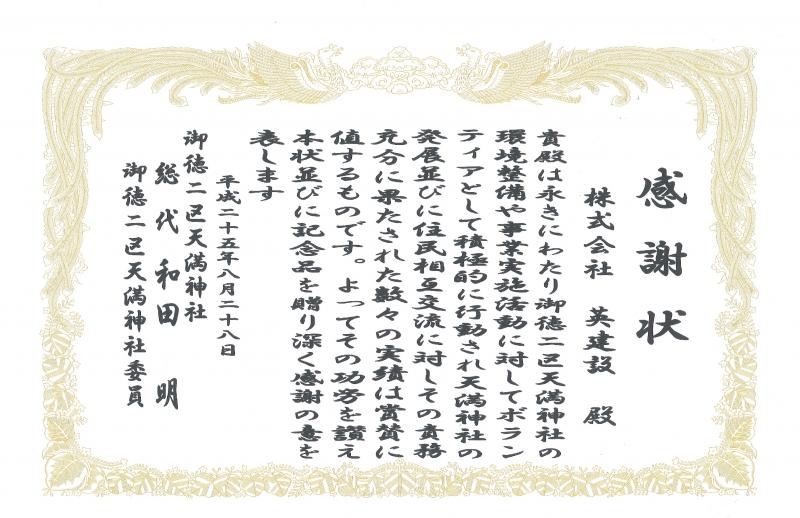 感謝状
株式会社 英建設 殿
貴殿は永きにわたり御徳二区天満神社の
環境整備や事業実施活動に対してボラン
ティアとして積極的に行動され天満神社の
発展並びに住民相互交流に対しその責務
充分に果たされた数々の実績は賞賛に
値するものです。よってその功労を讃え
本状並びに記念品を贈り深く感謝の意を
表します
平成二十五年八月二十八日
御徳二区天満神社
総代 和田 明
御徳二区天満神社委員